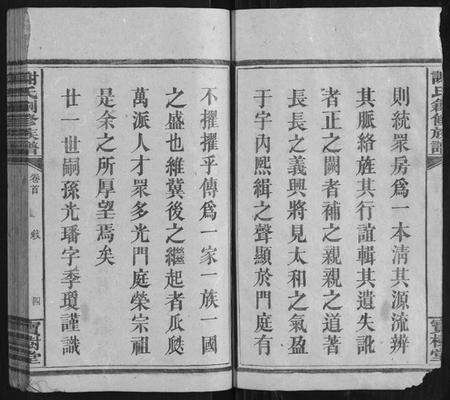 則統眾房為一本清其源流辨
其脈絡旌其行誼輯其遺失訛
者正之闕者補之親親之道著
長長之義興將見太和之氣盈
于宇內熙緝之聲顯於門庭有
不擢擢乎傳為一家一族一國
之盛也維冀後之繼起者瓜瓞
萬派人才眾多光門庭榮宗祖
是余之所厚望焉矣
廿一世嗣孫光璠字季瓊謹識
謝氏創修族譜
卷首
四
寶樹堂